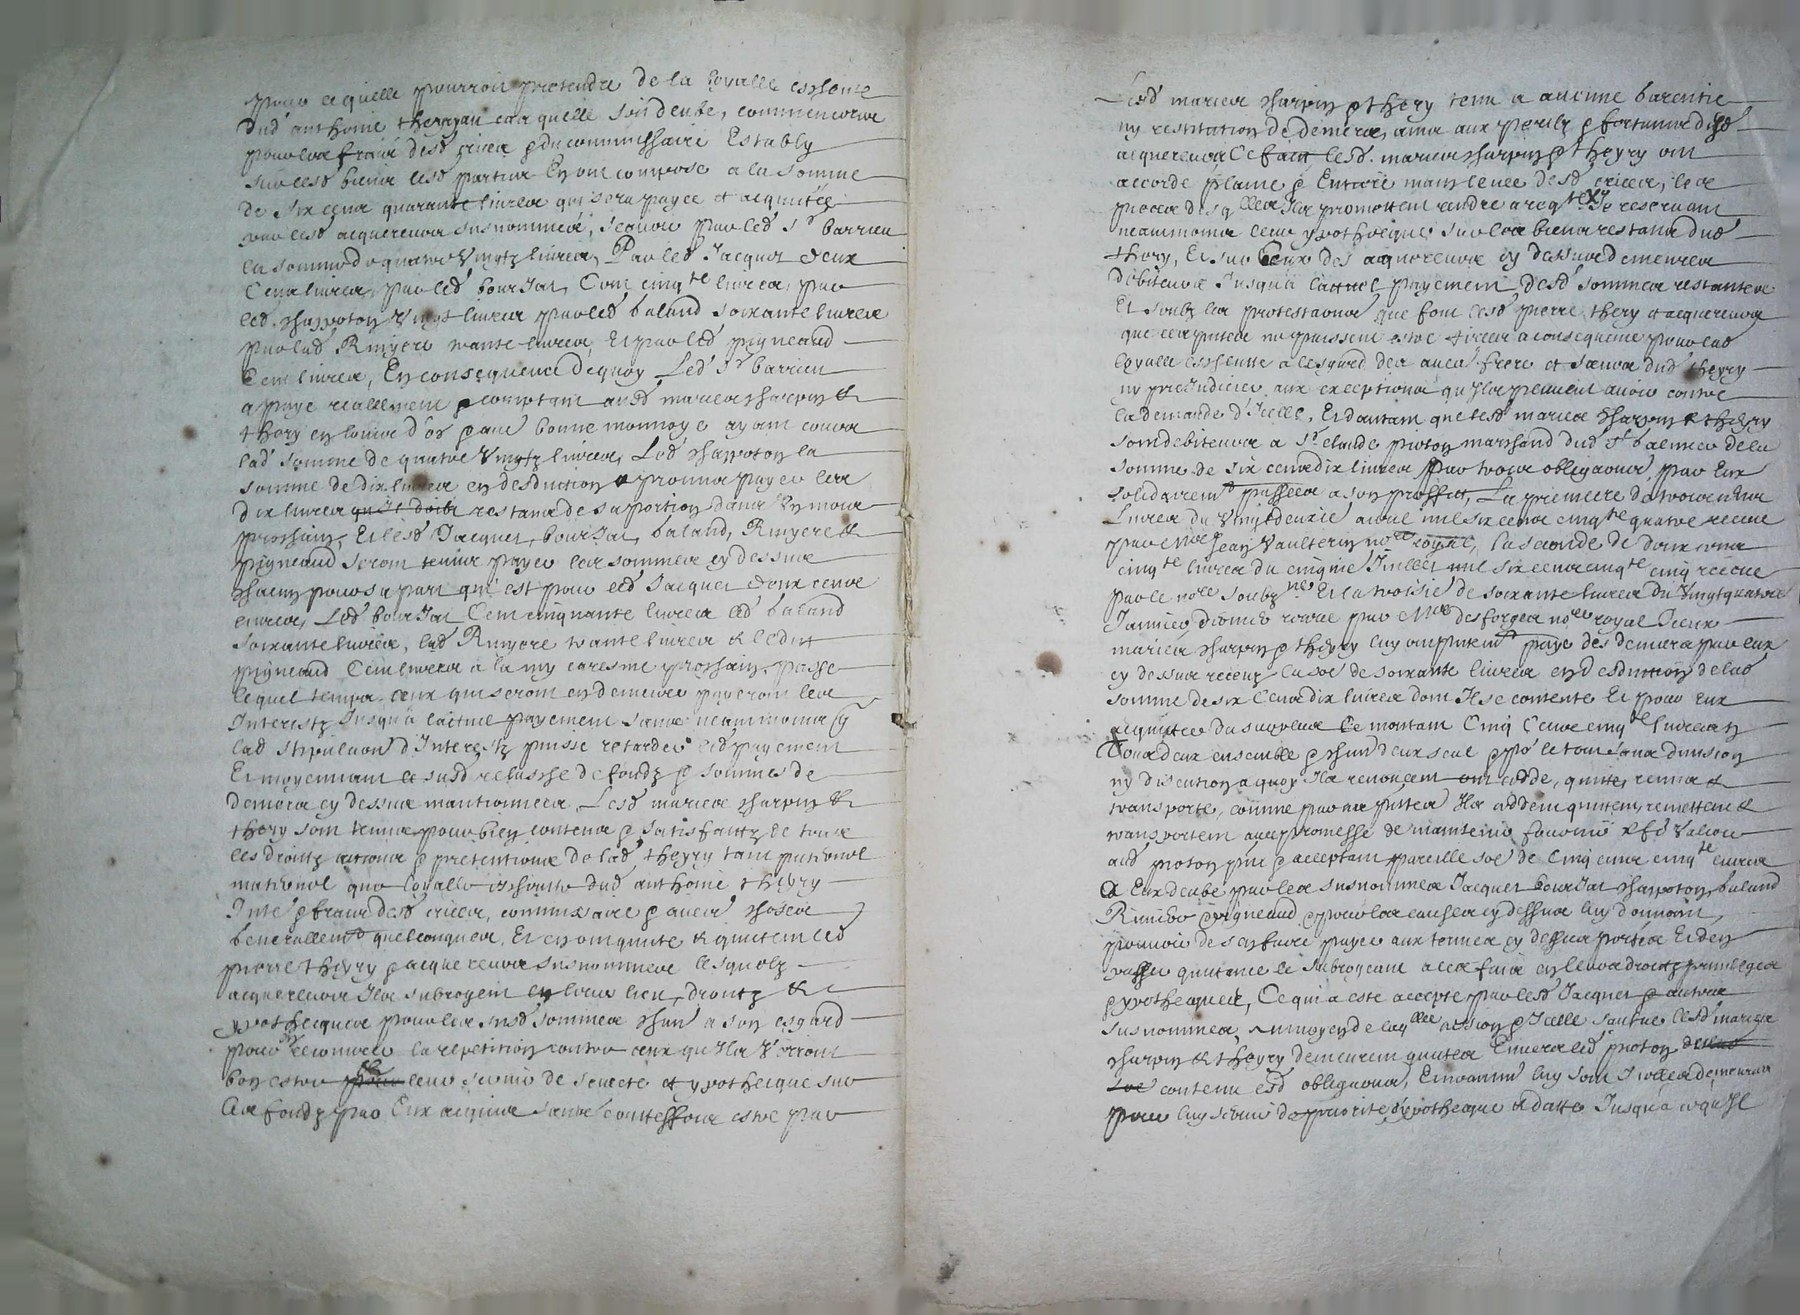 pour ce quelle pourroit pretendre de la loyalle eschoute
dud anthoine theragan car quelle soit deube, comme encore
pour les fraiz desd criees & du commissaire Estably
sur lesd biens lesd parties En ont compose a la somme
de six cens quarante livres qui sera payee et acquitée
par lesd acquereurs susnommés, scavoir par led sr barrieu
la somme de quatre vingtz livres, Par led Jacquet deux
Cens livres, par led bourJat Cent cinqte livres, par
led chappoton Vingt livres par led baland soixante livres
par lad Rivyere trante livres, Et par led pigneaud
Cent livres, En consequence dequoy Led sr barrieu
a payé reallement & comptant ausd maries charpin &
thery en louis d'or & autre bonne monnoye ayant cours
lad somme de quatre Vingtz livres, Led chappoton la
somme de dix livres en desduction & promis payer les
dix livres restans de sa portion dans un mois
prochain, Et lesd Jacquet, bourJat, baland, Rivyere &
pigneaud seront tenus payer les sommes cy dessus
chacun pour sa part qui est pour led Jacquet deux cens
livres, Led bourJat Cent cinquante livres led baland
soixante livres, lad Rivyere trante livres & ledit
pigneaud Cent livres à la my caresme prochain, passé
lequel temps ceux qui seront en demeure payeront les
Interestz Jusqu'à l'actuel payement sans neanmoins q
lad stipulation d'Interestz puisse retarder led payement
Et moyennant le susd relasche de fondz & sommes de
deniers cy dessus mantionnees, Lesd maries charpin &
thery sont tenus pour bien contens & satisfaitz de tous
les droitz actions & pretentions de lad theyry tant paternel
maternel que loyalle eschoute dud anthoine theyry
Inte & fraiz desd criees, commissaire & autres choses
Generallemt quelconques, Et en ont quitté & quittent led
pierre theyry & acquereurs susnommes lesquelz
acquereurs Ilz subrogent en leurs lieu, droitz &
ypotheques pour les susd sommes chun a son esgard
pour recouvrer la repetition contre ceux qu'Ilz Verront
bon estre leur servir de seureté et ypotheque sur
les fondz par Eux acquis sans toutesfois estre par
Lesd maries charpin & thery tenu a aucune Garentie
ny restitution de deniers, ains aux perilz & fortunes desd
acquereurs Ce faict lesd maries charpin & theyry ont
accordé plaine & Entiere mainlevée desd criees, les
pieces desqlles Ilz promettent rendre a reqte Se reservant
neanmoins leur ypotheque sur les biens restans dud
thery, Et sur Ceux des acquereurs cy dessus demeures
debiteurs Jusqu'a l'actuel payement desd sommes restantes
Et soubz les protestations que font lesd pierre thery & acquereurs
que ces pntes ne puissent estre tirees a consequence pour lad
loyalle eschoute a lesgard des autres frere et soeurs dud theyry
ny prejudicier aux exceptions qu'Ilz peuvent avoir contre
la demande d'Icelle, Et d'autant que lesd maries charpin & theyry
sont debiteurs a sr claude proton marchand dud st balmier de la
somme de six cens dix livres par trois obligations par Eux
solidairemt passees a son proffit, La premiere de trois cens
Livres du Vingtdeuxie avril mil six cens cinqte quatre receue
par Me Jean Vaulterin nore royal, la seconde de deux cens
cinqte livres du cinqme Juillet mil six cens cinqte cinq receue
par le nore soubzne Et la troisie de soixante livres du Vingtquatre
Janvier dernier receue par Me desforges nore royal Iceux
maries charpin & theyry luy ont pntemt payé des deniers par eux
cy dessus receuz la soe de soixante livres en desduction de lad
somme de six Cens dix livres dont Il se contente Et pour Eux
acquitter du surplus Ce montant Cinq Cens cinqte livres Ilz
Tous deux ensemble & chun d'eux seul & po le tout sans division
ny discution a quoy Ilz renoncent ont cedé, quitté, remis &
transporté, comme par ces pntes Ilz cèdent quittent, remettent &
transportent avec promesse de maintenir, fournir & fe Valoir
aud proton pnt & acceptant pareille soe de Cinq cens cinqte livres
a Eux deube par les susnommes Jacquet bourJat chappoton, baland
Rivier pigneaud & pour les causes cy dessus luy donnant
pouvoir de s'en faire payer aux termes cy dessus portés Et d'en
passer quittance le subrogeant a ces fins en leurs droitz privileges
& ypotheques, Ce qui a esté accepté par led Jacquet & autres
susnommes, Au moyen de laqlle cession & Icelle sortant lesd maries
charpin & theyry demeurent quittes Envers led proton
contenu esd obligations, Et neanmoins luy sont Icelles demeurées
pour luy servir de priorité d'ypotheque & datte Jusqu'a ce qu'Il